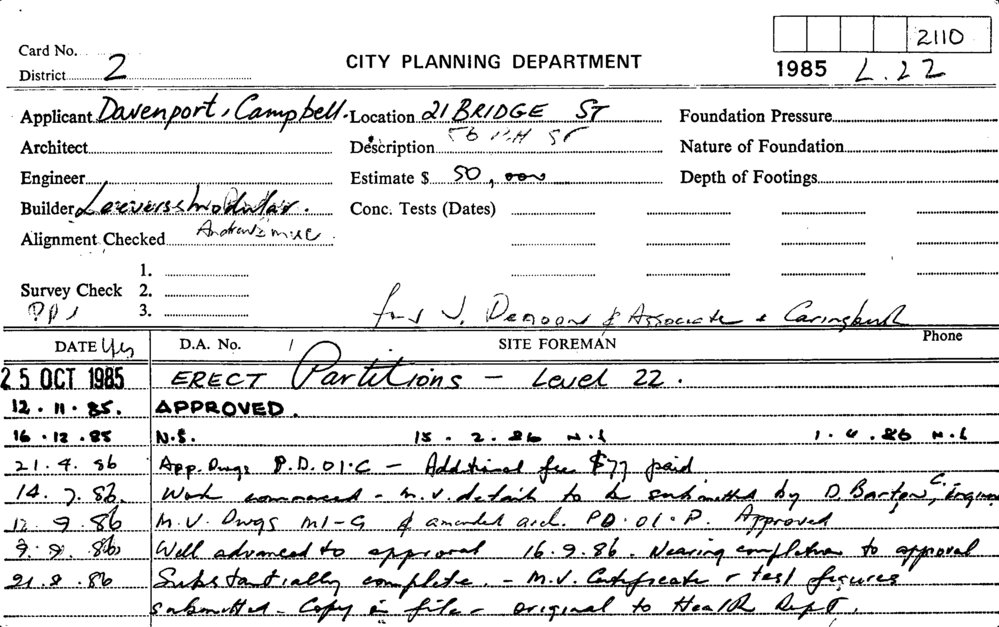 2110
Card No.
District 2
CITY PLANNING DEPARTMENT
1985 L.22
Applicant Davenport, Campbell. Location 21 BRIDGE ST Foundation Pressure
Architect Description Nature of Foundation
Engineer Estimate $ 50,000 Depth of Footings
Builder Conc. Tests (Dates)
Alignment Checked
1.
Survey Check 2.
3.
& Associates
DATE D.A. No. SITE FOREMAN Phone
25 OCT 1985 ERECT Partitions - Level 22.
12.11.85. APPROVED.
16.12.85 N.S. 15.2.86 N.S 1.4.86 N.S
21.4.86 App. Dwgs P.D.01.C - Additional fee $77 paid
14.7.86. Work commenced - M.V. details to be submitted by D. Barton, C. Engineer
12.9.86 M.V. Dwgs M1-G & amended arch. PD.01.P. Approved
9.9.86 Well advanced to approval 16.9.86. Nearing completion to approval
21.9.86 Substantially complete. - M.V. Certificate & test figures
submitted - Copy in file - original to Health Dept.